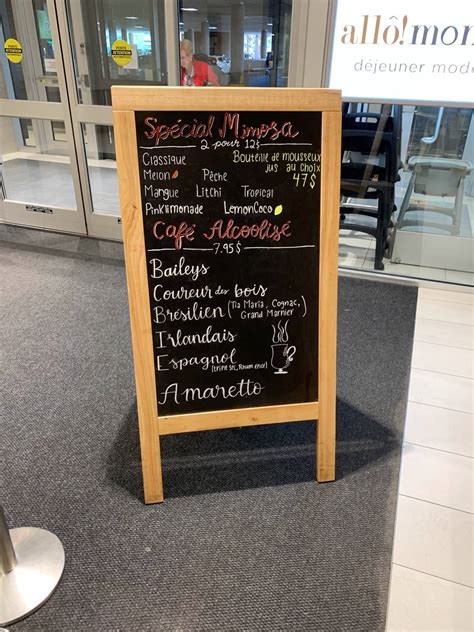 allô!mon
déjeuner mode
ATTENTION
ATTENTION
Spécial Mimosa
2 pour 12$
Classique
Melon Pêche
Mangue Litchi Tropical
Pink limonade LemonCoco
Bouteille de mousseux
jus au choix
47$
Café Alcoolisé
7.95$
Baileys
Coureur des bois
Brésilien (Tia Maria, Cognac,
Grand Marnier)
Irlandais
Espagnol
Amaretto